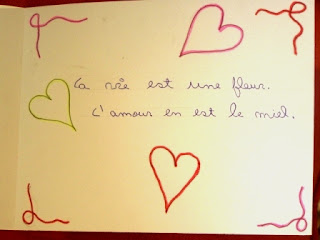 La vie est une fleur.
L'amour en est le miel.